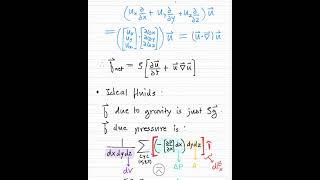 (uₓ ∂/∂x + u_y ∂/∂y + u_z ∂/∂z) u⃗
= ([uₓ u_y u_z] · [∂/∂x ∂/∂y ∂/∂z]) u⃗ = (u⃗ · ∇⃗) u⃗
∴ f⃗_net = ρ [∂u⃗/∂t + u⃗ · ∇⃗ u⃗]
• Ideal fluids:
f⃗ due to gravity is just ρg⃗
f⃗ due pressure is:
1/(dx dy dz) Σ [(-[∂P/∂x] dx) dy dz] î
dV ΔP A